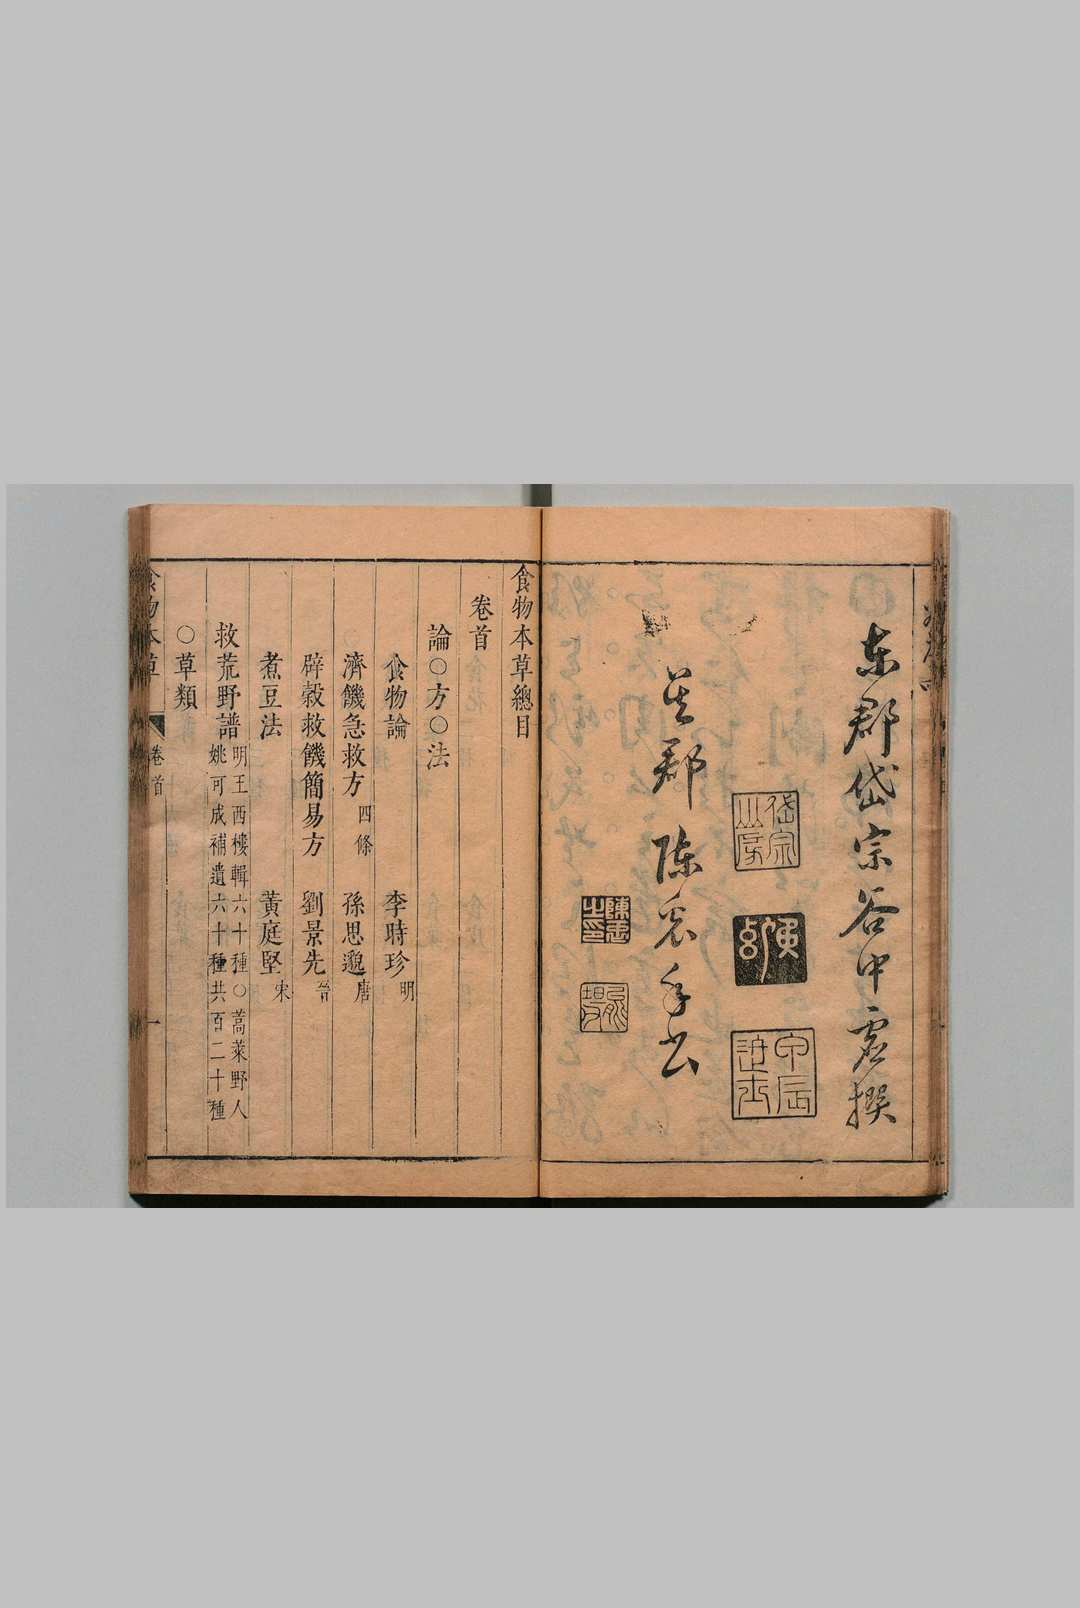 东郡岱宗谷中虛撰
岱宗
山房
吳郡陳元素書
食物本草總目
卷首
論○方○法
食物論 李時珍明
濟饑急救方四條 孫思邈唐
辟穀救饑簡易方 劉景先晉
煮豆法 黃庭堅宋
救荒野譜明王西樓輯六十種○蒿萊野人
姚可成補遺六十種共百二十種
○草類
食物本草 卷首 一